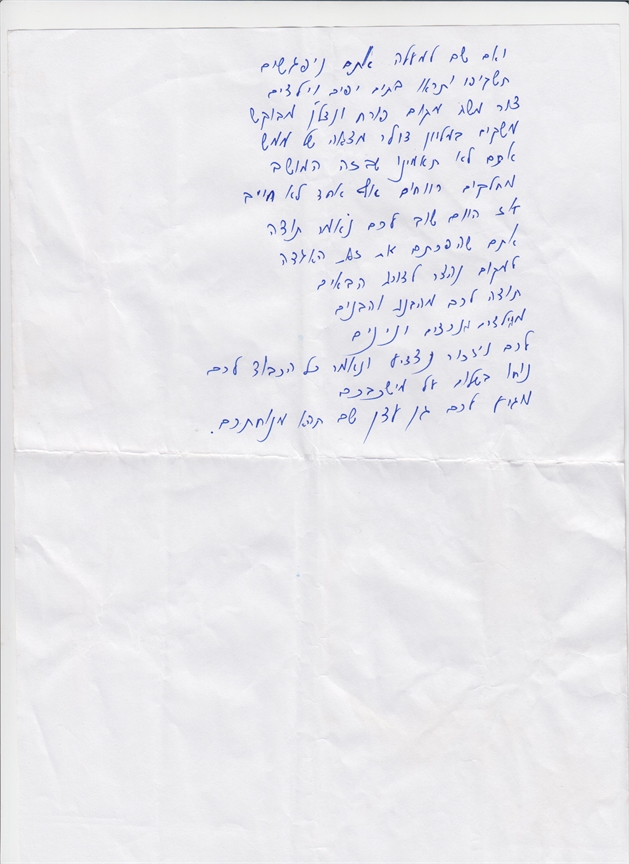 ואם שם למעלה אתם ניפגשים
תשקיפו ותראו בתים יפים וילדים
צור משה מקום פורח ונדל"ן מבוקש
משקים במליון דולר מצאה של ממש
אתם לא תאמינו שבזה המושב
מחלקים רווחים אף אחד לא חייב
אז היום שוב לכם נאמר תודה
אתם שהפכתם את זאת האגדה
למקום נהדר לדורות הבאים
תודה לכם מהבנות והבנים
מהילדים הנכדים ונינים
לכם ניזכור ונאמר כל הכבוד לכם
נוחו בשלום על מישכבכם
מגיע לכם גן עדן שם תהא מנוחתכם.